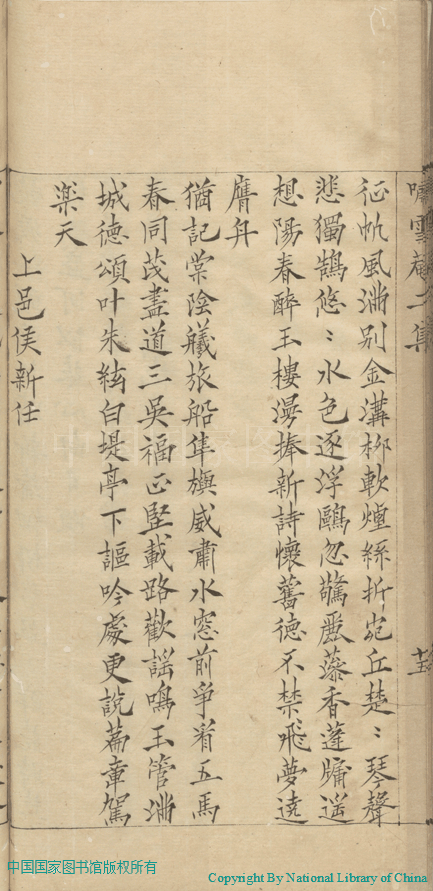 嘯雲菴二集
十五
征帆風滿別金溝柳軟煙絲折宛丘楚〻琴聲
悲獨鵠悠〻水色逐浮鷗忽驚麗藻香蓬牖遥
想陽春醉玉樓漫捧新詩懷舊德不禁飛夢遶
膺舟
猶記棠陰艤旅船隼旟威肅水窓前爭看五馬
春同茂盡道三吳福正堅載路歡謡鳴玉管滿
城德頌叶朱絃白堤亭下謳吟處更說篇章駕
楽天
上邑侯新任
中国国家图书馆版权所有
Copyright By National Library of China